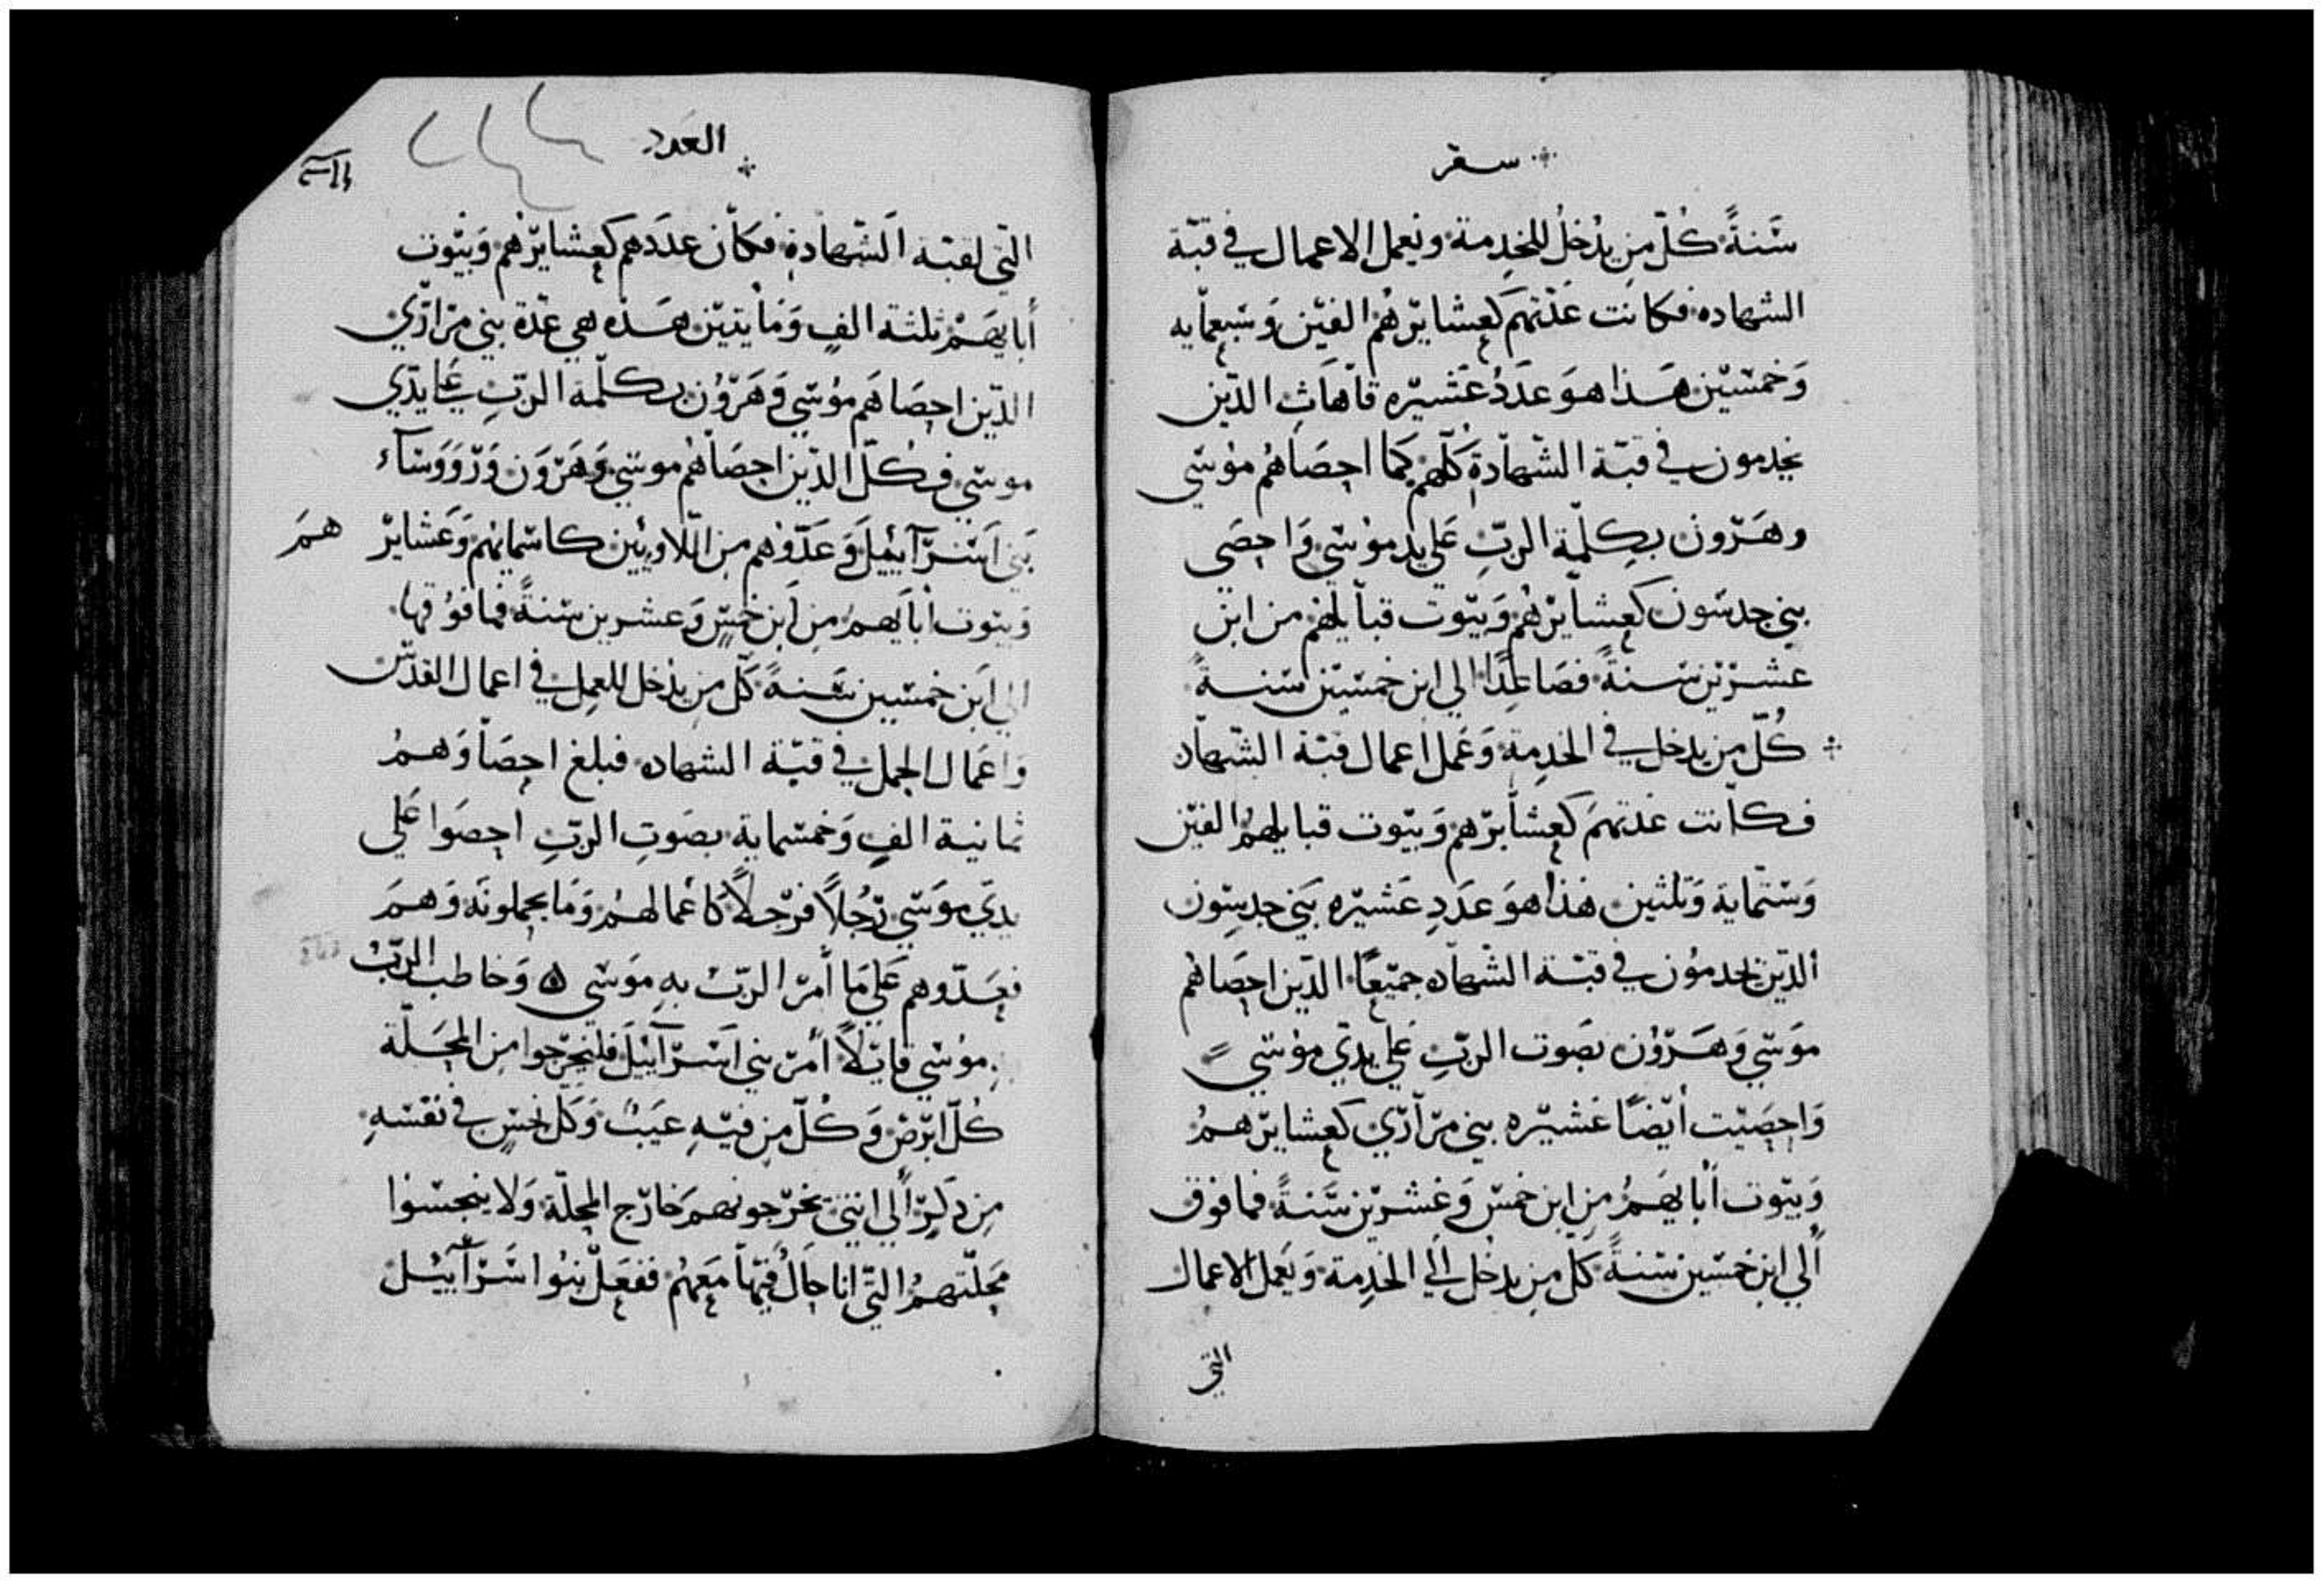 سفر
سَنةً كُلّ مِن يدُخلُ للخِدمة ويَعمل الاعمال في قبّة
الشهاده فكانت عَدّتهم كعشايرهُم الفين وسَبعمايه
وَخمسين هَذا هوَ عدَدُ عَشيره قاهَاث الذين
يخدمون في قبّة الشهادة كلّهم كما احصَاهُم موُسَي
وهَرون بِكلمة الربّ عَلي يد موُسَي وَاحصَي
بني جدسَون كعشايرهُم وَبيوت قبايلهم من ابن
عشرين سَنةً فصَاعِدًا الي ابن خمسين سَنةً
كُلّ من يدخل في الخدمة وَعَمل اعمال قبّة الشهاده
فكانت عَدتهمَ كعشايرهم وَبيوت قبايلهمُ الفين
وَستماية وَثلثين هَذا هوَ عَدَدِ عَشيره بَني جدسِون
الذين يخدموُن في قبّة الشهاده جميعًا الذين احصَاهُم
موَسَي وَهَروُن بصَوت الربّ عَلي يدَي موُسَي
وَاحصَيت أيضًا عَشيره بني مرَاري كعشايرهمُ
وَبيوت أبايهَمُ مِن ابن خمسَ وَعَشرين سَنةً فما فوق
ألي ابن خمسين سَنةً كلّ من يدخل الي الخدِمة وَيَعمل الاعمال
التي
العَدد
التي لقبّة الشهادةِ فكان عدَدهم كعشايرهُم وَبيُوت
أبايهَمْ ثلثة الفٍ وَمايتين هَذه هي عدّة بني مرَاري
الذين احصَاهَم موُسَي وَهَروُن بكلمة الربِّ عَلي يدَي
موسَي فكُلّ الذين احصَاهُم موسَي وَهَروَن وَرووَسَاء
بَني اسَرآييلَ وَعَدّوُهم من اللاويين كاسمايهُم وَعَشاير هَم
وَبيوت أبايهمُ مِن ابن خَمسٍ وَعشرين سَنةً فما فوُقها
الي ابَن خمسين سَنةً كَلّ مِن يدخل للعمِل في اعمال القدس
وَاعَمال الحمل في قبّة الشهاده فبلغ احصَاوَهمُ
ثمانية الفٍ وَخمسماية بصَوتِ الربِّ احصَوا عَلي
يدَي موَسَي رَجُلاً فرَجلاً كاعمالهمُ وَمَا يحملونهَ وَهمَ
فعَدّوهم عَلي مَا أمرَ الربّ بهِ موَسَي ه وَخاطب الربّ
موُسَي قايلاً أمر بني اسَرآييل فليخرجوا من المحَلّة
كُلّ ابَرصَ وَكُلّ مِن فيهِ عيَب وَكلّ نجسٍ في نفسَهِ
مِن ذَكِر ألي انثي يخرجونهمَ خارج المحلّة وَلا ينجسَوا
مَحلّتهمُ التي انا حَالٌ فيهَا مَعهمُ ففعَلَ بنوُا اسَرآييل